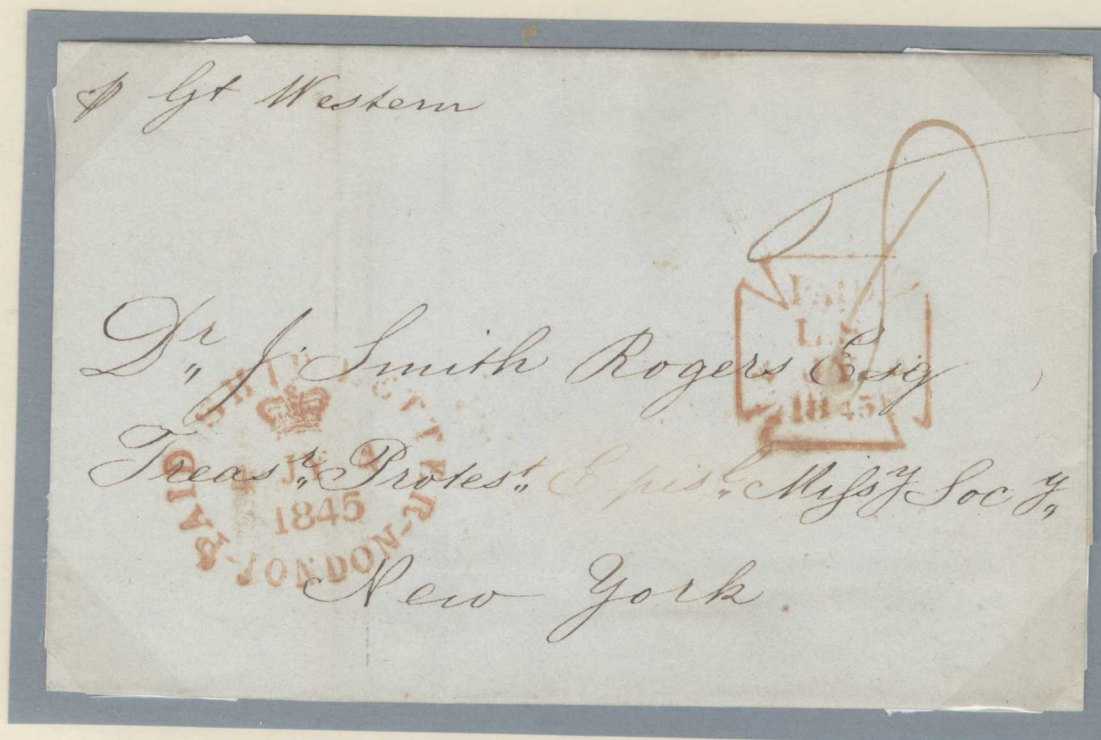 p Gt Western
Dr,, J. Smith Rogers Esq
Treasr,, Protest,, Episl,, Missy Socy,,
New York.
PAID SHIP LETTER LONDON
1845
PAID
L.S
1845